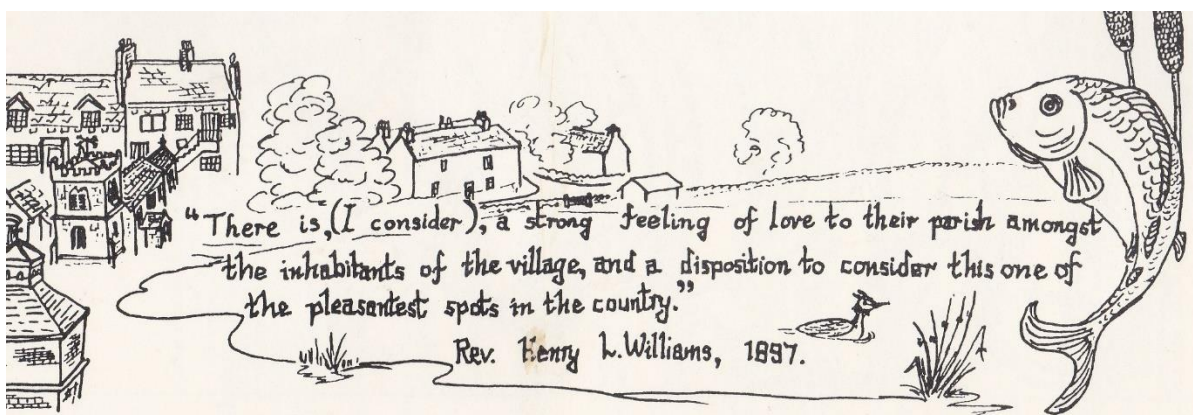 "There is, (I consider), a strong feeling of love to their parish amongst
the inhabitants of the village, and a disposition to consider this one of
the pleasantest spots in the country."
Rev. Henry L. Williams, 1897.